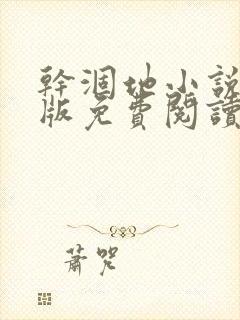 幹涸地小說
版免費閱讀
蕭咒